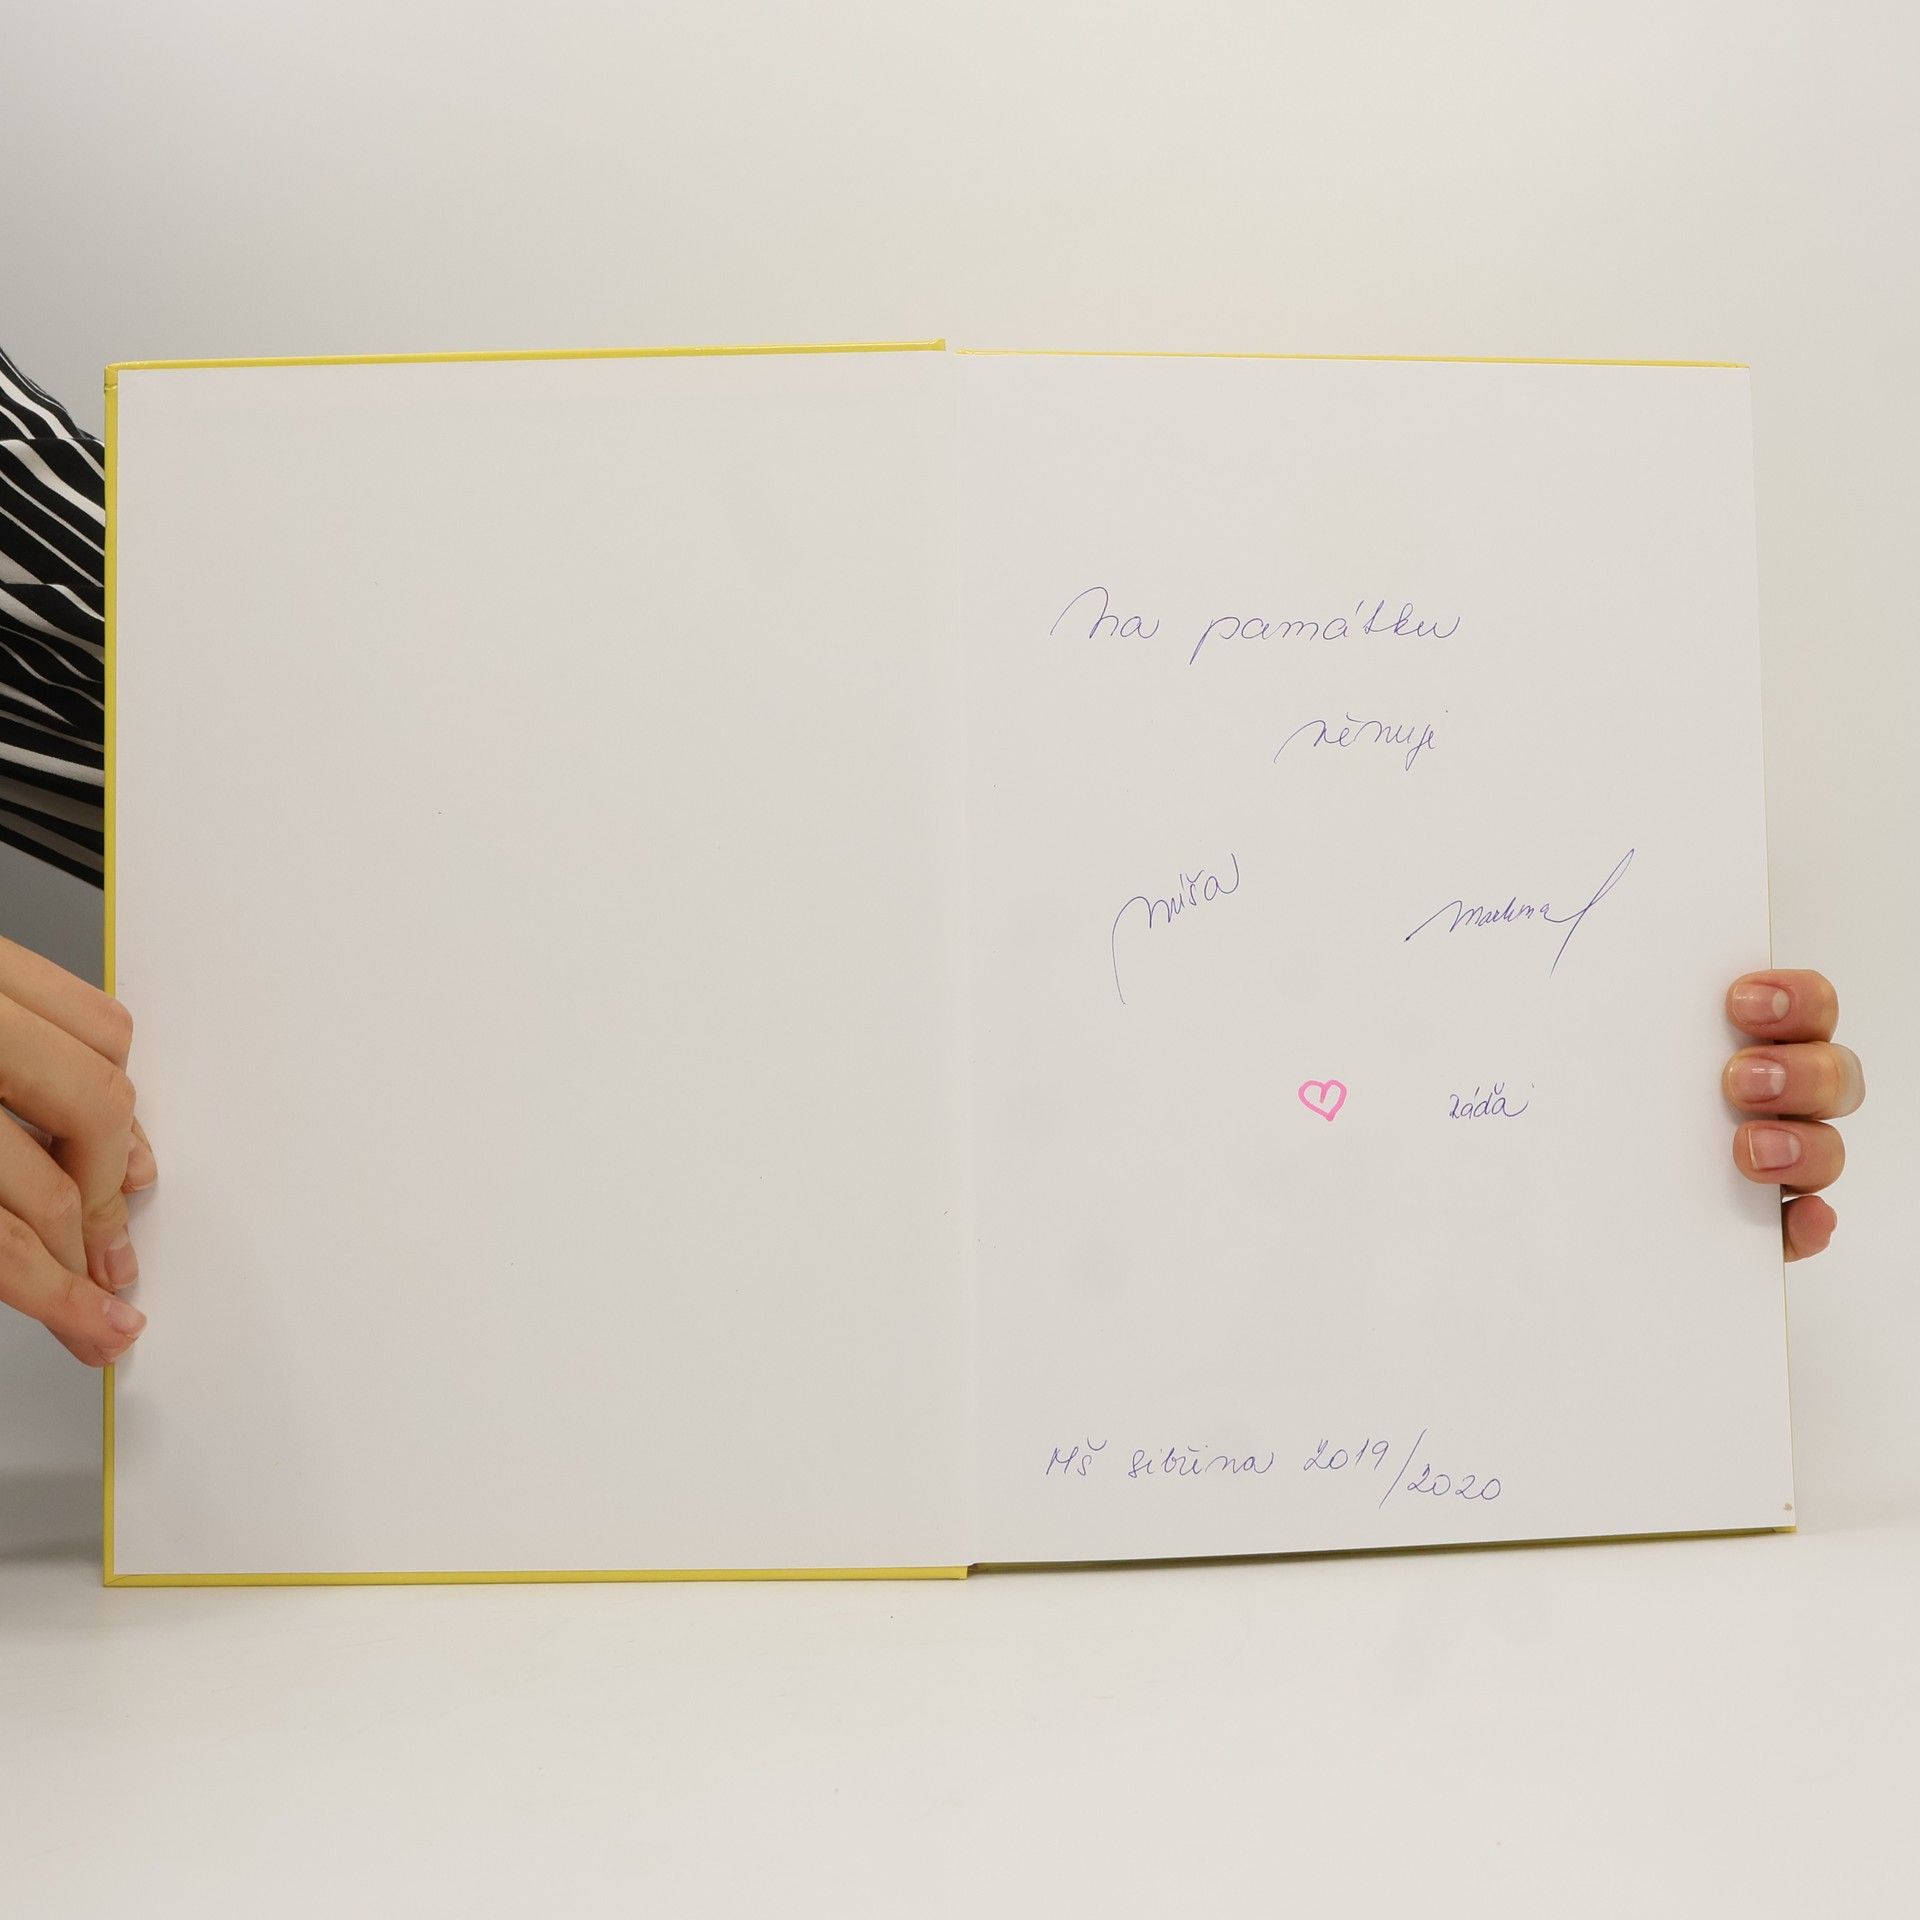 Na památku
věnuji
Míša Martina
Ráďa
MŠ Sibřina 2019/2020